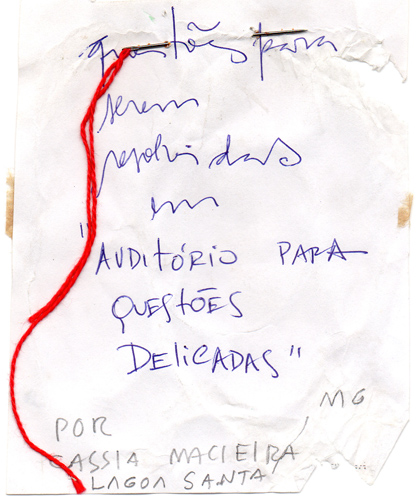 questões para
serem
resolvidas
em
"AUDITÓRIO PARA
QUESTÕES
DELICADAS"
MG
POR
CASSIA MACIEIRA
LAGOA SANTA